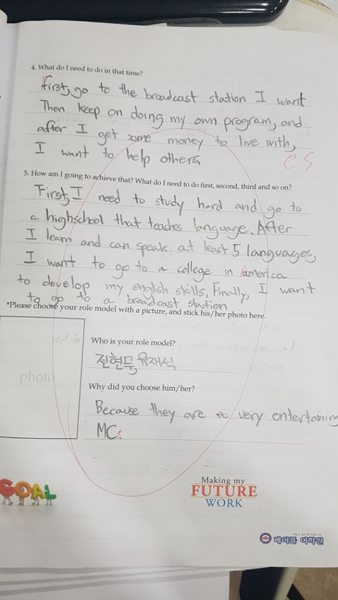 4. What do I need to do in that time?
First, go to the broadcast station I want
Then keep on doing my own program, and
after I get some money to live with,
I want to help others
es
5. How am I going to achieve that? What do I need to do first, second, third and so on?
First, I need to study hard and go to
a highschool that teaches language. After
I learn and can speak at least 5 languages,
I want to go to a college in America
to develop my english skills, Finally, I want
to go to a broadcast station
*Please choose your role model with a picture, and stick his/her photo here.
Who is your role model?
전현무 유재석
photo
Why did you choose him/her?
Because they are a very entertaining
MCs
GOAL
Making my
FUTURE
WORK